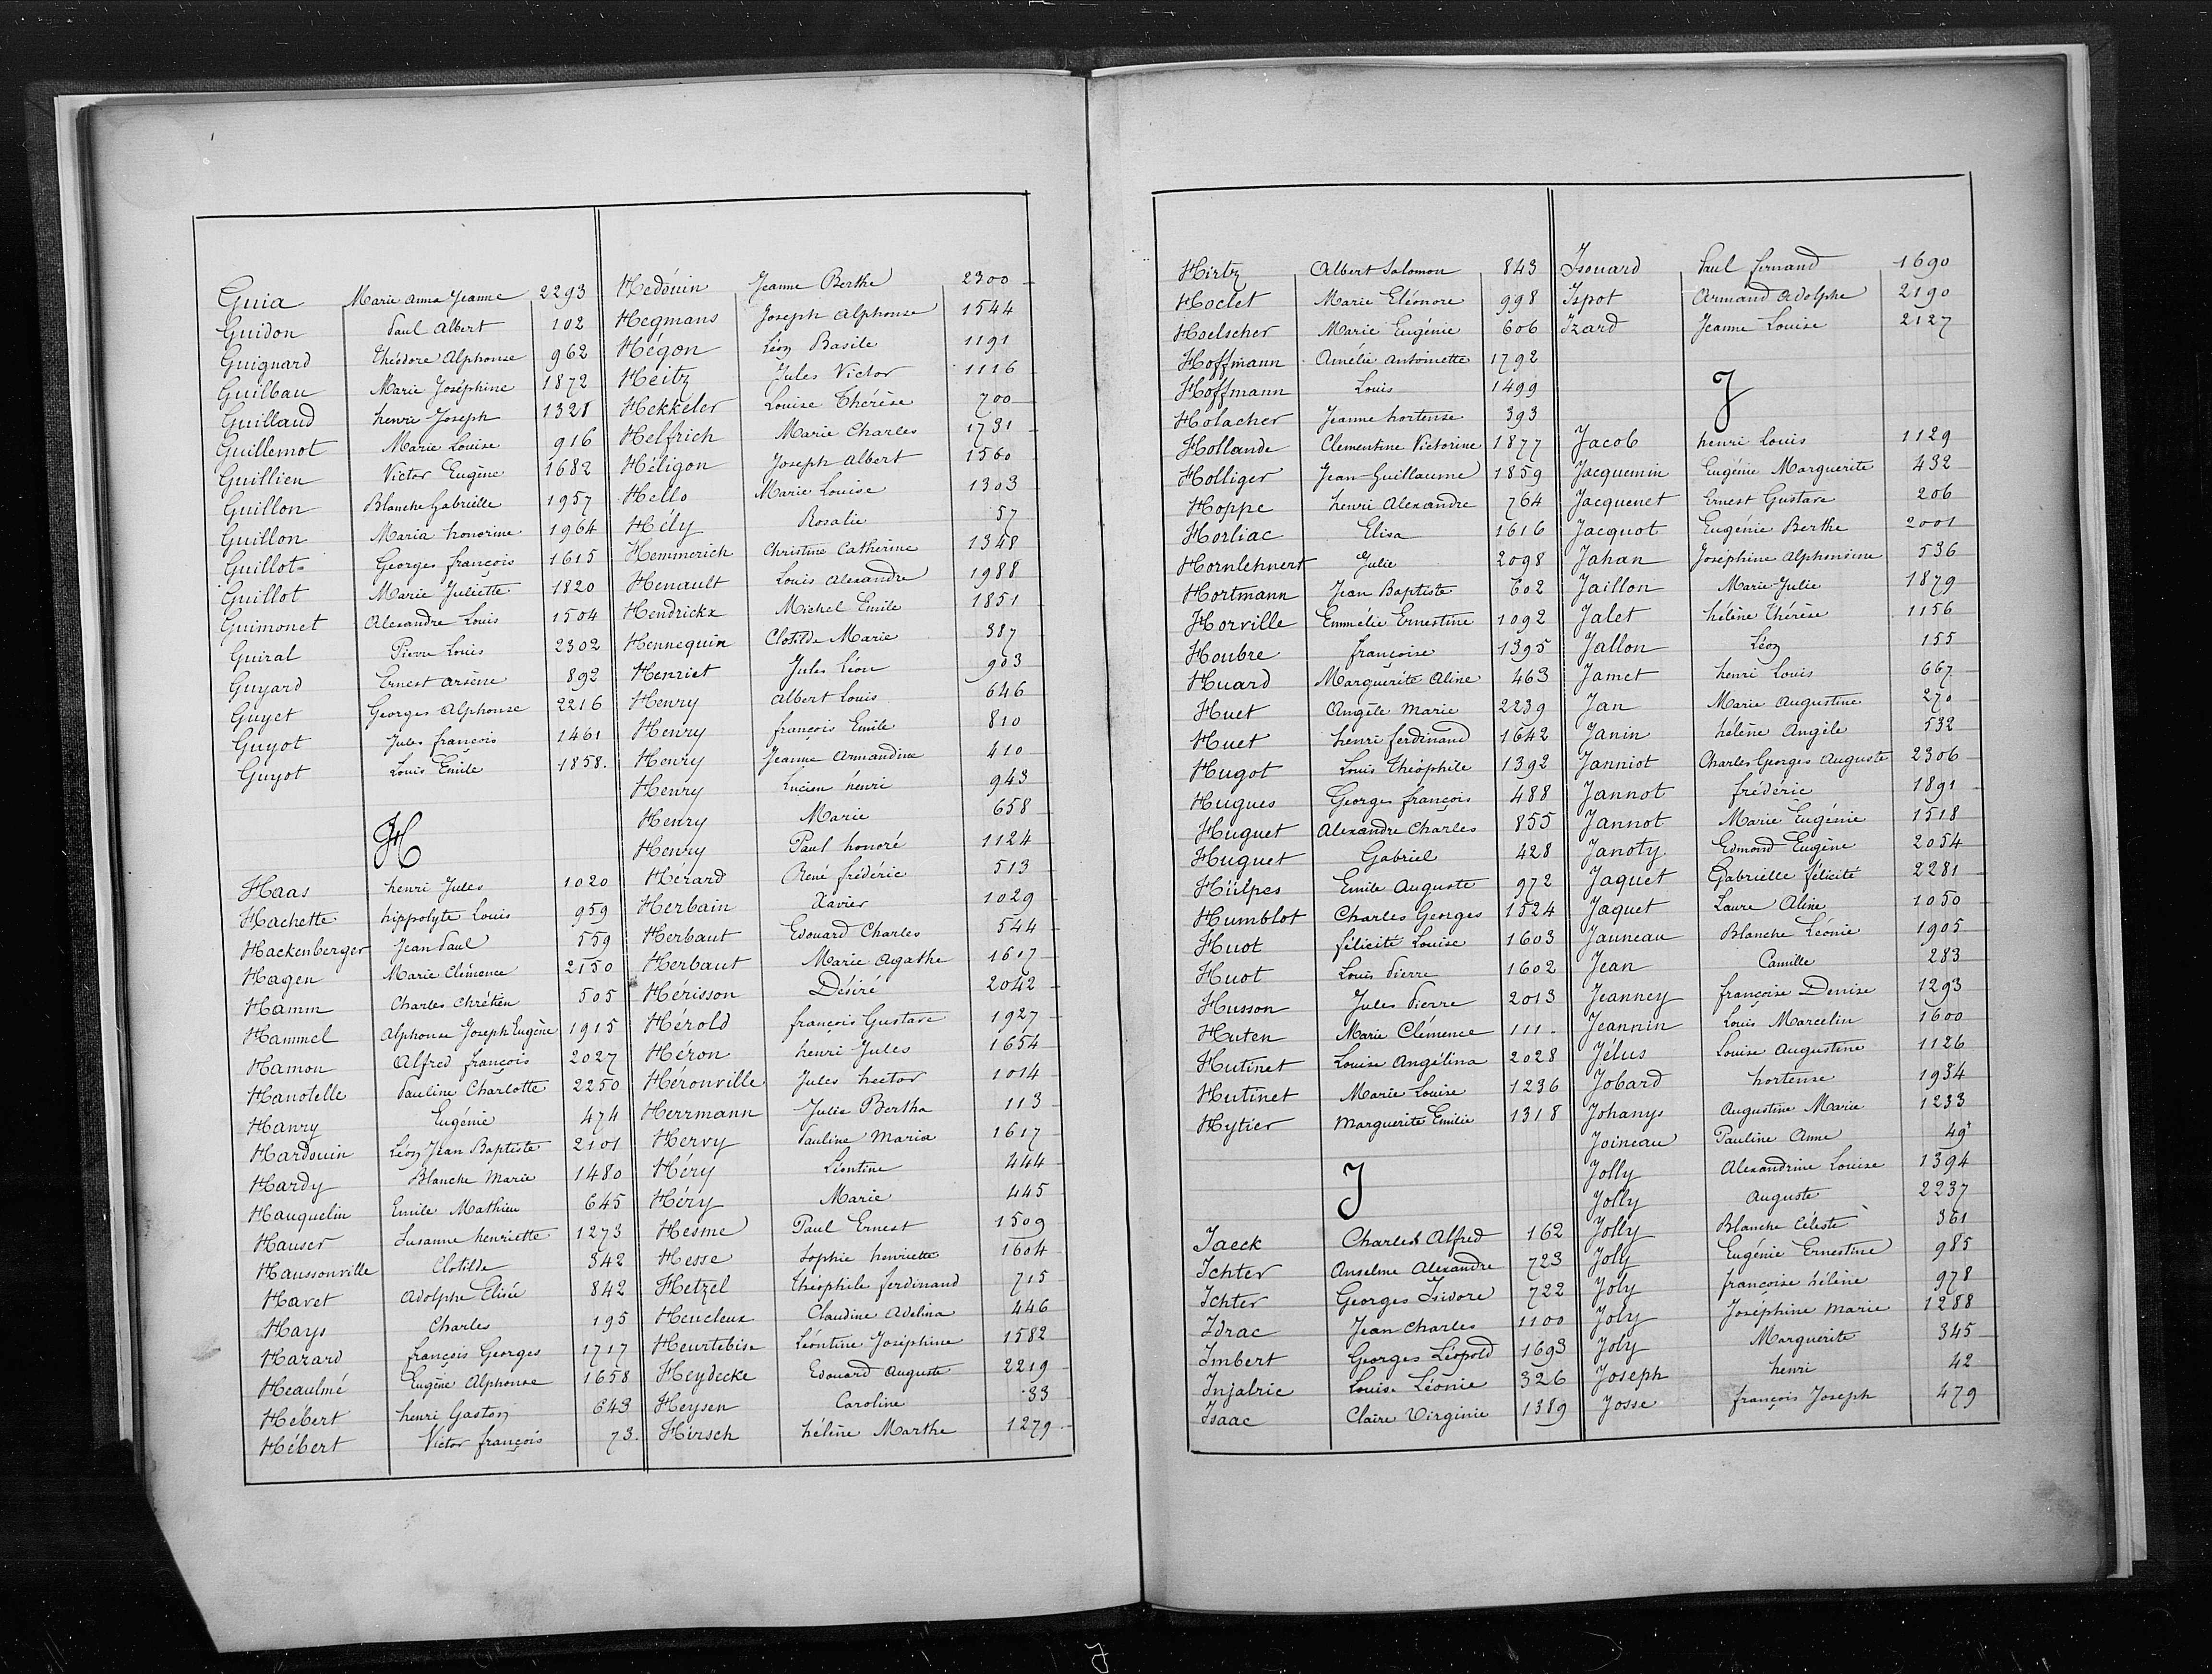 Guia Marie Anna Jeanne 2293
Guidon Paul Albert 102
Guignard Théodore Alphonse 962
Guilbau Marie Joséphine 1872
Guillaud henri Joseph 1321
Guillemot Marie Louise 916
Guillien Victor Eugène 1682
Guillon Blanche Gabrielle 1957
Guillon Maria honorine 1964
Guillot Georges françois 1615
Guillot Marie Juliette 1820
Guimonet Alexandre Louis 1504
Guiral Pierre Louis 2302
Guyard Ernest Arsène 892
Guyet Georges Alphonse 2216
Guyot Jules françois 1461
Guyot Louis Emile 1858.
H
Haas henri Jules 1020
Hachette hippolyte Louis 959
Hackenberger Jean Paul 559
Hagen Marie Clémence 2150
Hamm Charles Chrétien 505
Hammel Alphonse Joseph Eugène 1915
Hamon Alfred françois 2027
Hanotelle Pauline Charlotte 2250
Hanry Eugénie 474
Hardouin Léon Jean Baptiste 2101
Hardy Blanche Marie 1480
Hauquelin Emile Mathieu 645
Hauser Susanne henriette 1273
Haussonville Clotilde 342
Havet Adolphe Elisée 842
Hays Charles 195
Hazard françois Georges 1717
Heaulmé Eugène Alphonse 1658
Hébert henri Gaston 643
Hébert Victor françois 73.
Hedouin Jeanne Berthe 2300
Hegmans Joseph Alphonse 1544
Hégon Léon Basile 1191
Heitz Jules Victor 1116
Hekkeler Louise Thérèse 700
Helfrich Marie Charles 1731
Héligon Joseph Albert 1560
Hello Marie Louise 1303
Hély Rosalie 57
Hemmerich Christine Catherine 1348
Henault Louis Alexandre 1988
Hendrickx Michel Emile 1851
Hennequin Clotilde Marie 387
Henriet Jules Léon 903
Henry Albert Louis 646
Henry françois Emile 810
Henry Jeanne Armandine 410
Henry Lucien henri 943
Henry Marie 658
Henry Paul honoré 1124
Herard René frédéric 513
Herbain Xavier 1029
Herbaut Edouard Charles 544
Herbaut Marie Agathe 1617
Hérisson Désiré 2042
Hérold françois Gustave 1927
Héron henri Jules 1654
Hérouville Jules hector 1014
Herrmann Julie Bertha 113
Hervy Pauline Maria 1617
Héry Léontine 444
Héry Marie 445
Hesme Paul Ernest 1509
Hesse Sophie henriette 1604
Hetzel Théophile ferdinand 715
Heucleux Claudine Adelina 446
Heurtebise Léontine Joséphine 1582
Heydecke Edouard Auguste 2219
Heysen Caroline 33
Hirsch hélène Marthe 1279
Hirtz Albert Salomon 843
Hoclet Marie Eléonore 998
Hoelscher Marie Eugénie 606
Hoffmann Amélie Antoinette 1792
Hoffmann Louis 1499
Holacher Jeanne hortense 393
Hollande Clementine Victorine 1877
Holliger Jean-Guillaume 1859
Hoppe henri Alexandre 764
Horliac Elisa 1616
Hornlehnert Julie 2098
Hortmann Jean Baptiste 602
Horville Emmélie Ernestine 1092
Houbre françoise 1395
Huard Marguerite Aline 463
Huet Angèle Marie 2239
Huet henri ferdinand 1642
Hugot Louis Théophile 1392
Hugues Georges françois 488
Huguet Alexandre Charles 855
Huguet Gabriel 428
Hülpes Emile Auguste 972
Humblot Charles Georges 1524
Huot félicité Louise 1603
Huot Louis Pierre 1602
Husson Jules Pierre 2013
Huten Marie Clémence 111
Hutinet Louise Angélina 2028
Hutinet Marie Louise 1236
Hytier Marguerite Emilie 1318
I
Iaeck Charles Alfred 162
Ichter Anselme Alexandre 723
Ichter Georges Isidore 722
Idrac Jean Charles 1100
Imbert Georges Léopold 1693
Injalric Louise Léonie 326
Isaac Claire Virginie 1389
Isouard Paul fernand 1690
Ispot Armand Adolphe 2190
Izard Jeanne Louise 2127
J
Jacob henri Louis 1129
Jacquemin Eugénie Marguerite 432
Jacquenet Ernest Gustave 206
Jacquot Eugénie Berthe 2001
Jahan Joséphine Alphonsine 536
Jaillon Marie-Julie 1879
Jalet hélène Thérèse 1156
Jallon Léon 155
Jamet henri Louis 667
Jan Marie Augustine 270
Janin hélène Angèle 532
Janniot Charles Georges Auguste 2306
Jannot frédéric 1891
Jannot Marie Eugénie 1518
Janoty Edmond Eugène 2054
Jaquet Gabrielle félicité 2281
Jaquet Laure Aline 1050
Jauneau Blanche Léonie 1905
Jean Camille 283
Jeanney françoise Denise 1293
Jeannin Louis Marcelin 1600
Jélus Louise Augustine 1126
Jobard hortense 1934
Johanys Augustine Marie 1233
Joineau Pauline Anne 49
Jolly Alexandrine Louise 1394
Jolly Auguste 2237
Jolly Blanche Céleste 361
Joly Eugénie Ernestine 985
Joly françoise hélène 978
Joly Joséphine Marie 1288
Joly Marguerite 345
Joseph henri 42
Josse françois Joseph 479